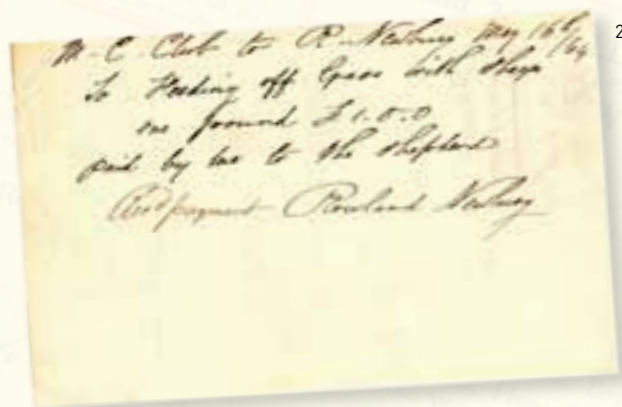 M - C - Club to R - Newbury May 16th /64
To Feeding off Grass with Sheep
on ground £1.0.0
paid by me to the shepherd
Recd payment Rowland Newbury
2